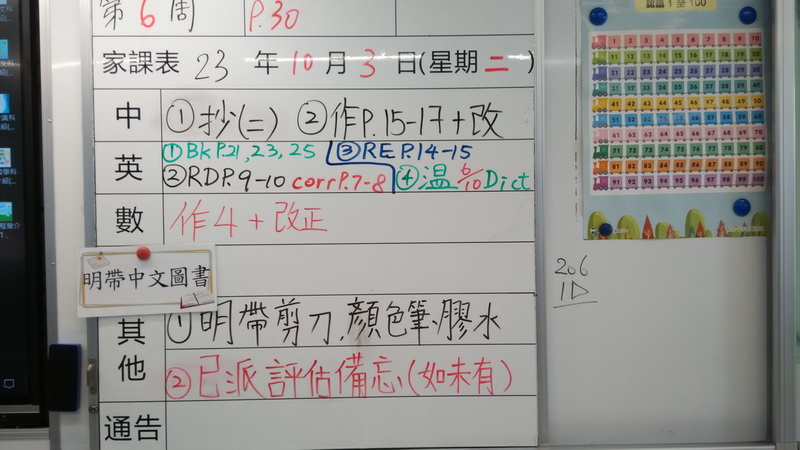 第6周 P.30
認識 1 至 100
家課表 23 年 10 月 3 日(星期 二 )
中 ①抄(二) ②作P.15-17+改
英 ①BkP.21,23,25 ③RE P.14-15
②RDP.9-10 corrP.7-8 ④溫 6/10 Dict
數 作4+改正
明帶中文圖書
其他 ①明帶剪刀,顏色筆,膠水
②已派評估備忘(如未有)
通告
206